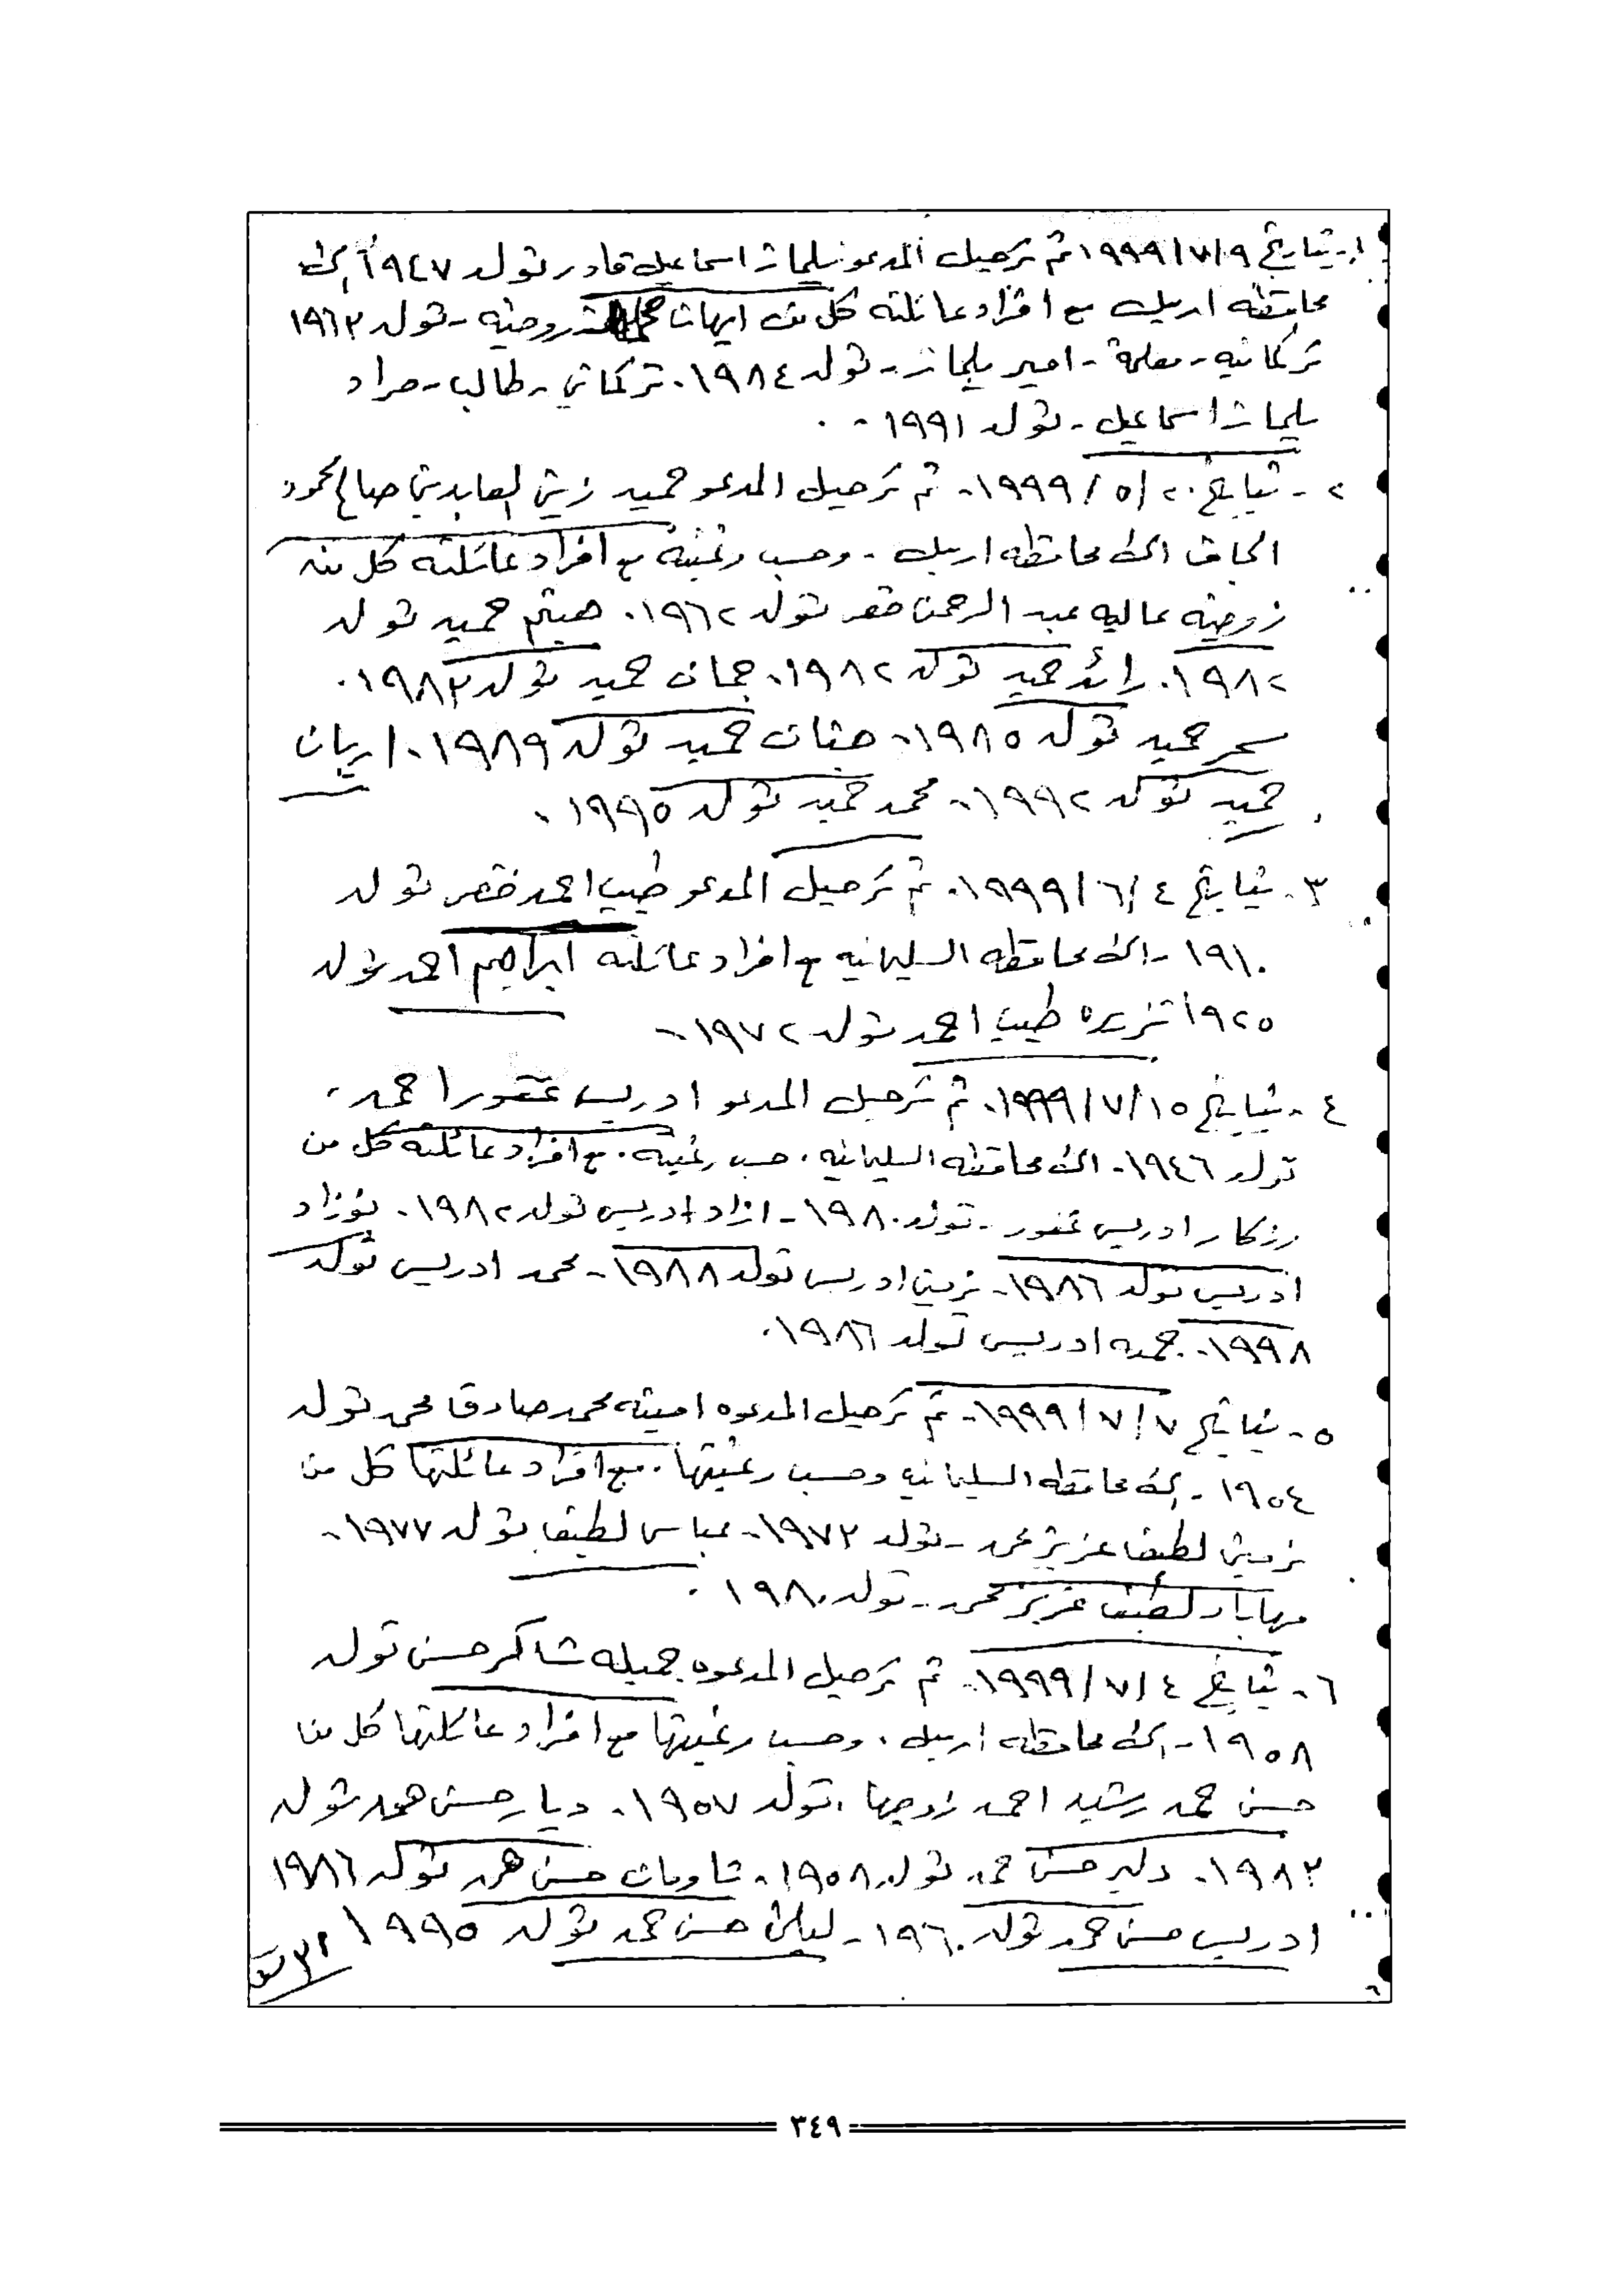 ١- بتاريخ ١٩٩٩/٧/٩ تم ترحيل المدعو سليمان اسماعيل قادر تولد ١٩٤٧ الى
محافظه اربيل مع افراد عائلته كل من ايمان زوجته - تولد ١٩٦٣
تركمانيه - معلمة - امير سليمان - تولد ١٩٨٤. تركماني - طالب - مراد
سليمان اسماعيل - تولد ١٩٩١ -
٢ - بتاريخ ١٩٩٩/٥/٢٠- تم ترحيل المدعو حميد زين العابدين صالح محمود
الجاف الى محافظه اربيل - وحسب رغبته مع افراد عائلته كل من
زوجته عاليه عبد الرحمن خضر تولد ١٩٦٢. هيثم حميد تولد
١٩٨٢. رائد حميد تولد ١٩٨٢. جمان حميد تولد ١٩٨٣.
سحر حميد تولد ١٩٨٥. حنان حميد تولد ١٩٨٩. اريان
حميد تولد ١٩٩٢. محمد حميد تولد ١٩٩٥.
٣- بتاريخ ١٩٩٩/٦/٤. تم ترحيل المدعو طيب احمد خضر تولد
١٩١٠ - الى محافظه السليمانيه مع افراد عائلته ابراهيم احمد تولد
١٩٢٥ طيب احمد تولد ١٩٧٢ -
٤ - بتاريخ ١٩٩٩/٧/١٥. تم ترحيل المدعو ادريس غفور احمد.
تولد ١٩٤٦ - الى محافظه السليمانيه. حسب رغبته. مع افراد عائلته كل من
رزكار ادريس غفور - تولد ١٩٨٠ - ازاد ادريس تولد ١٩٨٢ - نوزاد
ادريس تولد ١٩٨٦ - ادريس تولد ١٩٨٨ - محمد ادريس تولد
١٩٩٨. ادريس تولد ١٩٨٦.
٥ - بتاريخ ١٩٩٩/٧/٧ - تم ترحيل المدعوه امينه محمد صادق محمد تولد
١٩٥٤ - الى محافظه السليمانيه وحسب رغبتها. مع افراد عائلتها كل من
لطيف عزيز محمد - تولد ١٩٧٣ - عباس لطيف تولد ١٩٧٧ -
مهاباد لطيف عزيز محمد - تولد ١٩٨٠.
٦ - بتاريخ ١٩٩٩/٧/٤. تم ترحيل المدعوه جميله شاكر حسن تولد
١٩٥٨ - الى محافظه اربيل. وحسب رغبتها مع افراد عائلتها كل من
حسن حمد رشيد احمد زوجها. تولد ١٩٥٧. ديار حسن حمد تولد
١٩٨٣. دلير حسن حمد تولد ١٩٥٨. حسن حمد تولد ١٩٨٦
ادريس حسن حمد تولد ١٩٦٠ - ليلى حسن حمد تولد ١٩٩٥
٣٤٩